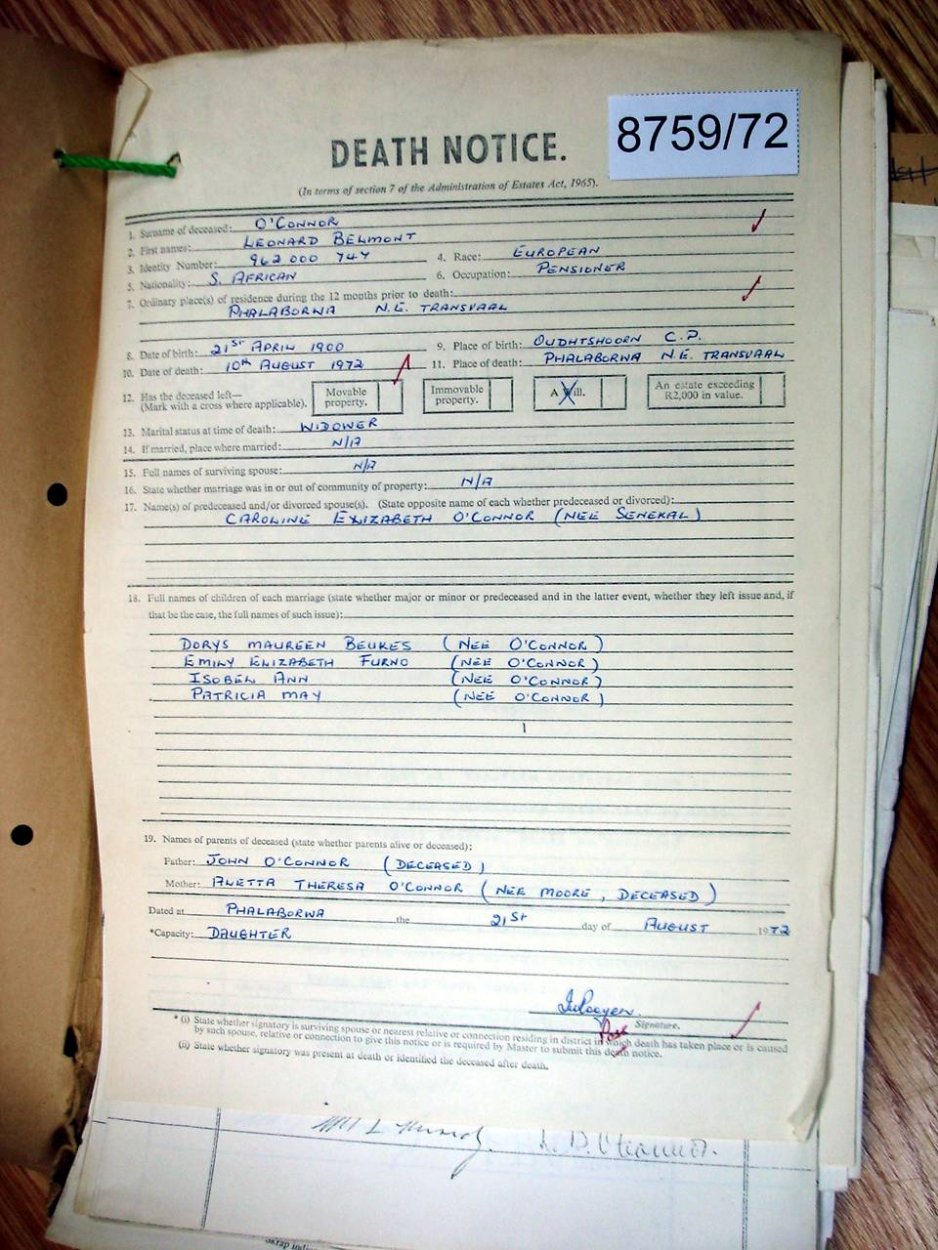 8759/72
DEATH NOTICE.
(In terms of section 7 of the Administration of Estates Act, 1965).
1. Surname of deceased: O'CONNOR
2. First names: LEONARD BELMONT
3. Identity Number: 962 000 744 4. Race: EUROPEAN
5. Nationality: S. AFRICAN 6. Occupation: PENSIONER
7. Ordinary place(s) of residence during the 12 months prior to death:
PHALABORWA N.E. TRANSVAAL
8. Date of birth: 21st APRIL 1900 9. Place of birth: OUDHTSHOORN C.P.
10. Date of death: 10th AUGUST 1972 11. Place of death: PHALABORWA N.E. TRANSVAAL
12. Has the deceased left— Movable Immovable A Will. An estate exceeding
(Mark with a cross where applicable). property. property. R2,000 in value.
13. Marital status at time of death: WIDOWER
14. If married, place where married: N/A
15. Full names of surviving spouse: N/A
16. State whether marriage was in or out of community of property: N/A
17. Name(s) of predeceased and/or divorced spouse(s). (State opposite name of each whether predeceased or divorced):
CAROLINE ELIZABETH O'CONNOR (NEE SENEKAL)
18. Full names of children of each marriage (state whether major or minor or predeceased and in the latter event, whether they left issue and, if
that be the case, the full names of such issue):
DORYS MAUREEN BEUKES (NEE O'CONNOR)
EMILY ELIZABETH FURNO (NEE O'CONNOR)
ISOBEL ANN (NEE O'CONNOR)
PATRICIA MAY (NEE O'CONNOR)
19. Names of parents of deceased (state whether parents alive or deceased):
Father: JOHN O'CONNOR (DECEASED)
Mother: ALETTA THERESA O'CONNOR (NEE MOORE, DECEASED)
Dated at PHALABORWA the 21st day of AUGUST 1972
*Capacity: DAUGHTER
Signature.
* (i) State whether signatory is surviving spouse or nearest relative or connection residing in district in which death has taken place or is caused
by such spouse, relative or connection to give this notice or is required by Master to submit this death notice.
(ii) State whether signatory was present at death or identified the deceased after death.